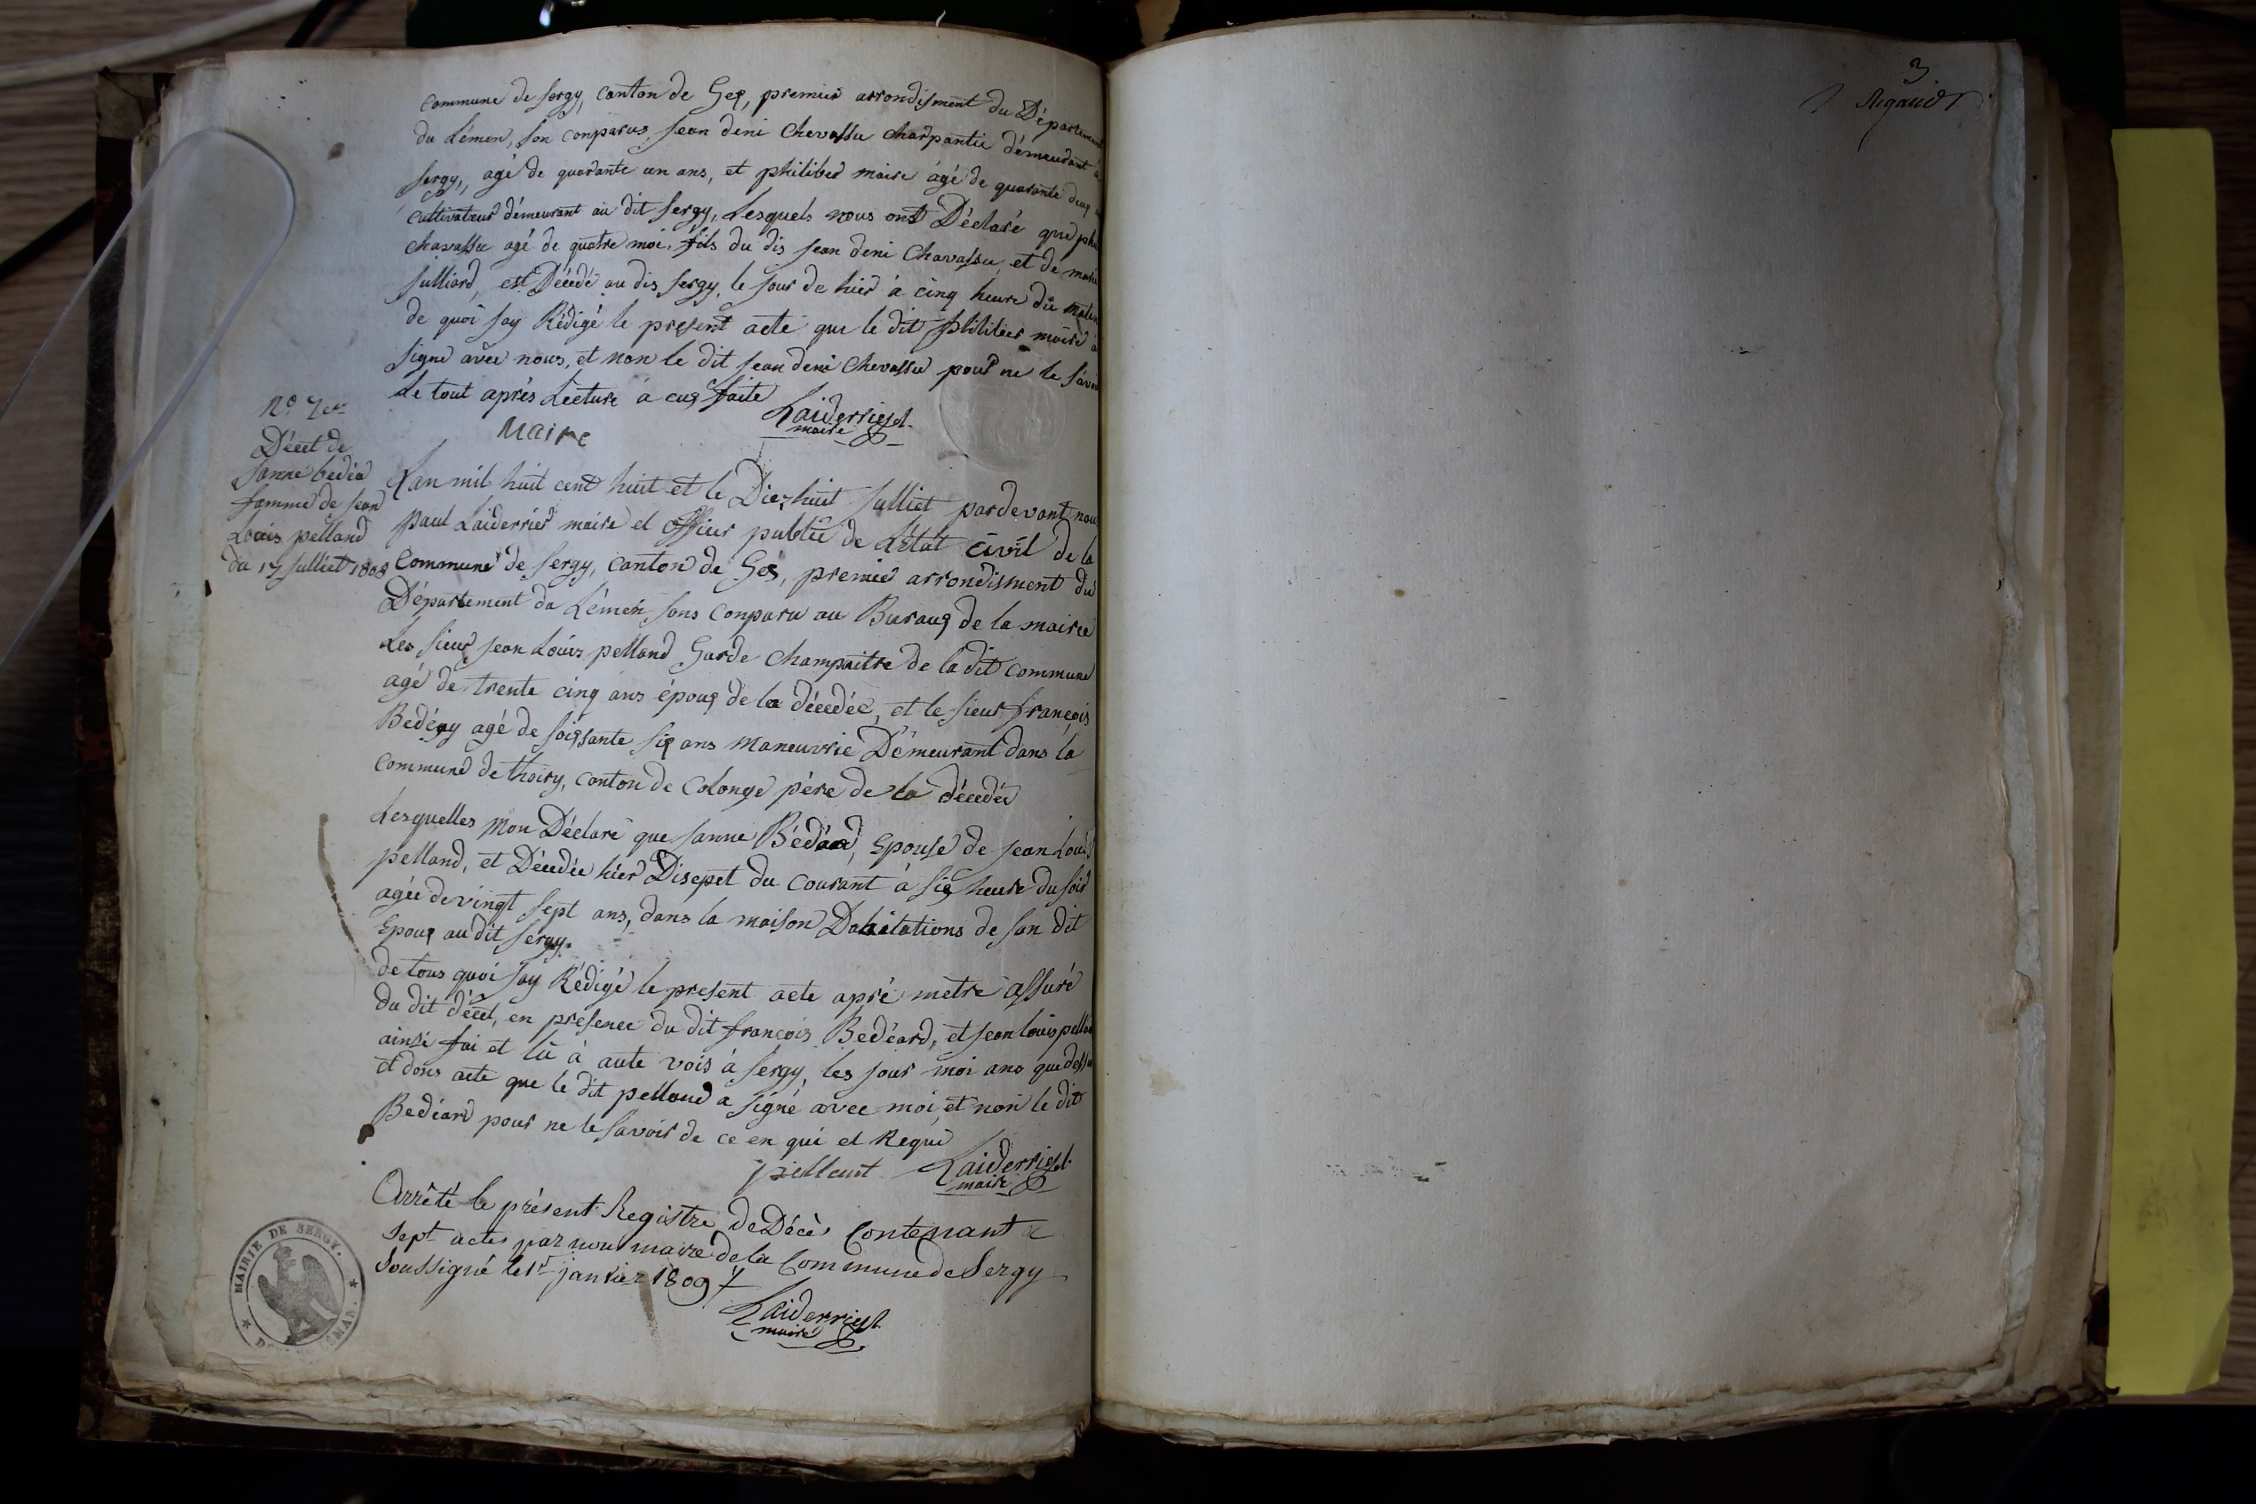 commune de sergy, canton de Gex, premier arrondisment du Département
du Lémen, son conparus, jean deni Chevassu charpantie démeurant à
sergy, agé de quarante un ans, et philiber maire âgé de quarante deux
cultivateur démeurant au dit sergy, Lesquels nous ont Déclaré que
chavassu agé de quatre moi, fils du dis jean deni Chavassu, et de marie
julliard, est Décédé au dis sergy, le jour de hier à cinq heure du matin
de quoi jay Rédigé le present acte que le dit philiber maire a
signé avec nous, et non le dit jean deni Chevassu pour ne le savoir
Le tout aprés Lecture a eux faite
Laiderrier
maire
Maire
N.º 7
Décet de
janne bedéa
famme de jean
Louis pelland
du 17 julliet 1808
Lan mil huit cent huit et le Diezhuit julliet pardevant nous
paul Laiderrier maire et officier public de L'état civil de la
Commune de sergy, canton de Gex, premier arrondisment du
Département du Lémen, sons conparu au Buraux de la mairie
Les sieur jean Louis pelland Garde champaitre de la dit commune
agé de trente cinq ans époux de la décedée, et le sieur françois
Bedéay agé de soixsante six ans Maneuvrie Démeurant dans la
commune de thoiry, canton de Colonge pére de la décedée
Lesquelles mon Déclaré que janne Bédéard, Epouse de jean Louis
pelland, et Décedée hier Disepet du courant à six heure du soir
agée de vingt sept ans, dans la maison Dabitations de son dit
Epoux au dit sergy.
de tous quoi jay Rédigé le present acte apré metre assuré
du dit décet, en présence du dit françois Bedéard, et jean louis pelland
ainsi fai et lû à aute vois à sergy, les jour moi ans que dessu
et dons acte que le dit pelland a signé avec moi, et non le dit
Bedéard pour ne le savoir de ce en qui et Requi
pellant Laiderrier
maire
Arrêté le présent Registre de Décès Contenant
Sept actes par nous maire de la Commune de Sergy
Soussigné le 1r janvier 1809
Laiderrier
maire
MAIRIE DE SERGY.
3
Rigaud